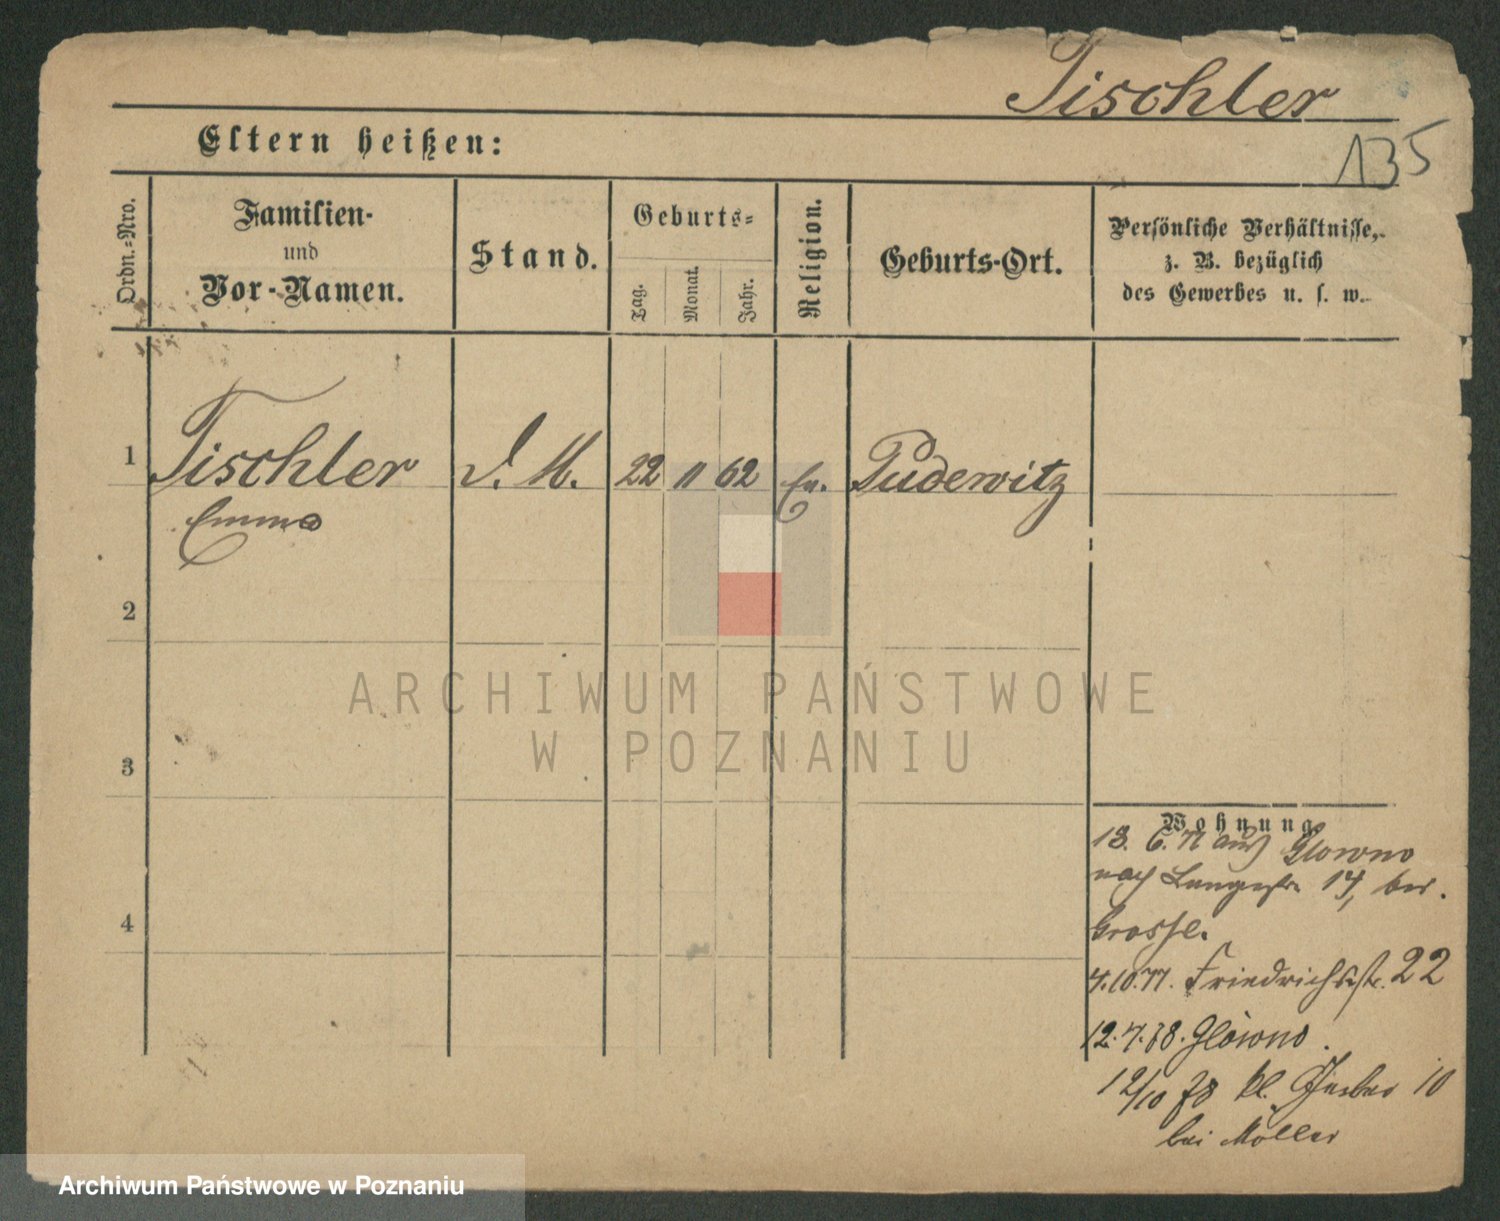 Tischler
135
Eltern heißen:
Ordn.-Nro.
Familien-
und
Vor-Namen.
Stand.
Geburts-
Tag.
Monat.
Jahr.
Religion.
Geburts-Ort.
Persönliche Verhältnisse,
z. B. bezüglich
des Gewerbes u. s. w.
1 Tischler D. M. 22 11 62 Ev. Pudewitz
Emma
2
3
4
Wohnung
13. 6. 77 aus Glowno
nach Langestr 14, bei
Grosse.
4.10.77. Friedrichstr. 22
12.7.78. Glowno.
12/10 78 kl. Gerber 10
bei Möller
ARCHIWUM PAŃSTWOWE
W POZNANIU
Archiwum Państwowe w Poznaniu